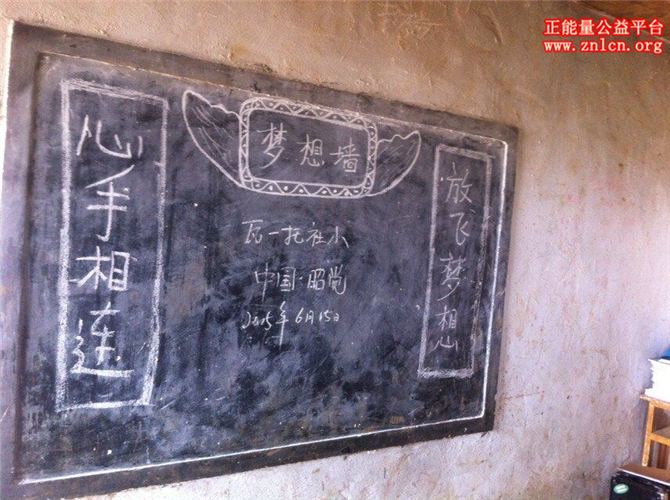 正能量公益平台
www.znlcn.org
梦想墙
心手相连
放飞梦想
瓦一托社小
中国·昭觉
2015年6月15日